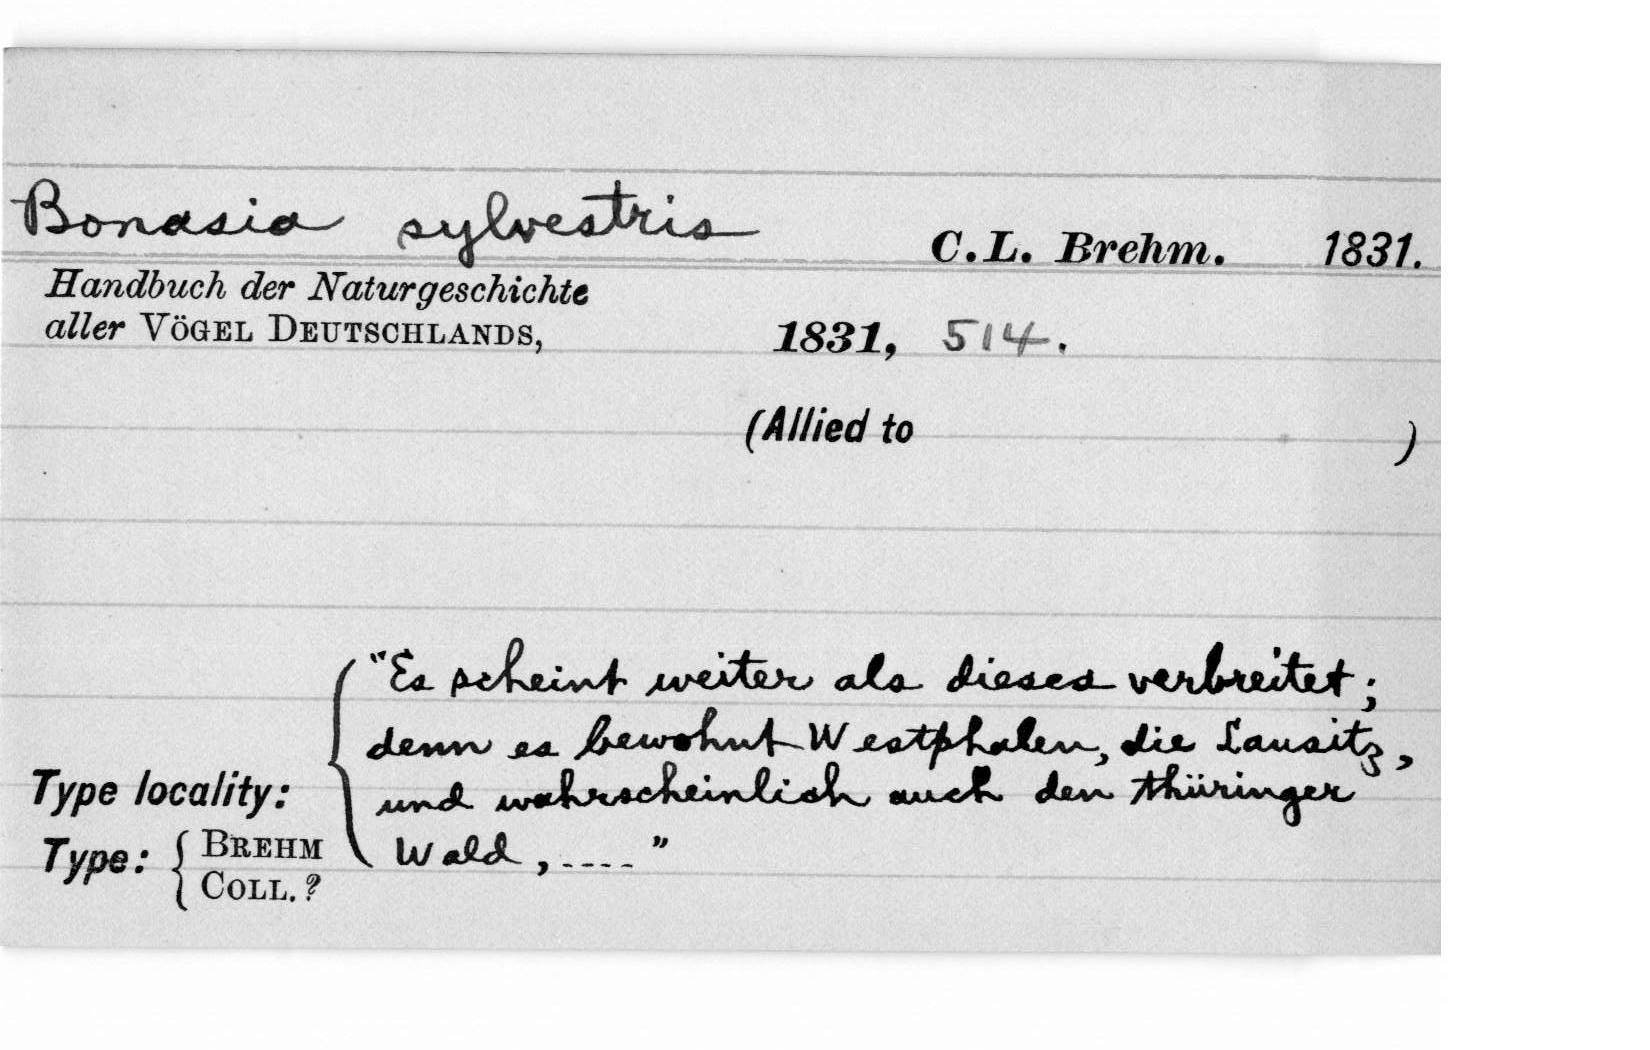 Bonasia sylvestris C.L. Brehm. 1831.
Handbuch der Naturgeschichte
aller VÖGEL DEUTSCHLANDS, 1831, 514.
(Allied to )
"Es scheint weiter als dieses verbreitet;
denn es bewohnt Westphalen, die Lausitz,
Type locality: und wahrscheinlich auch den thüringer
Wald, ----"
Type: BREHM
COLL.?